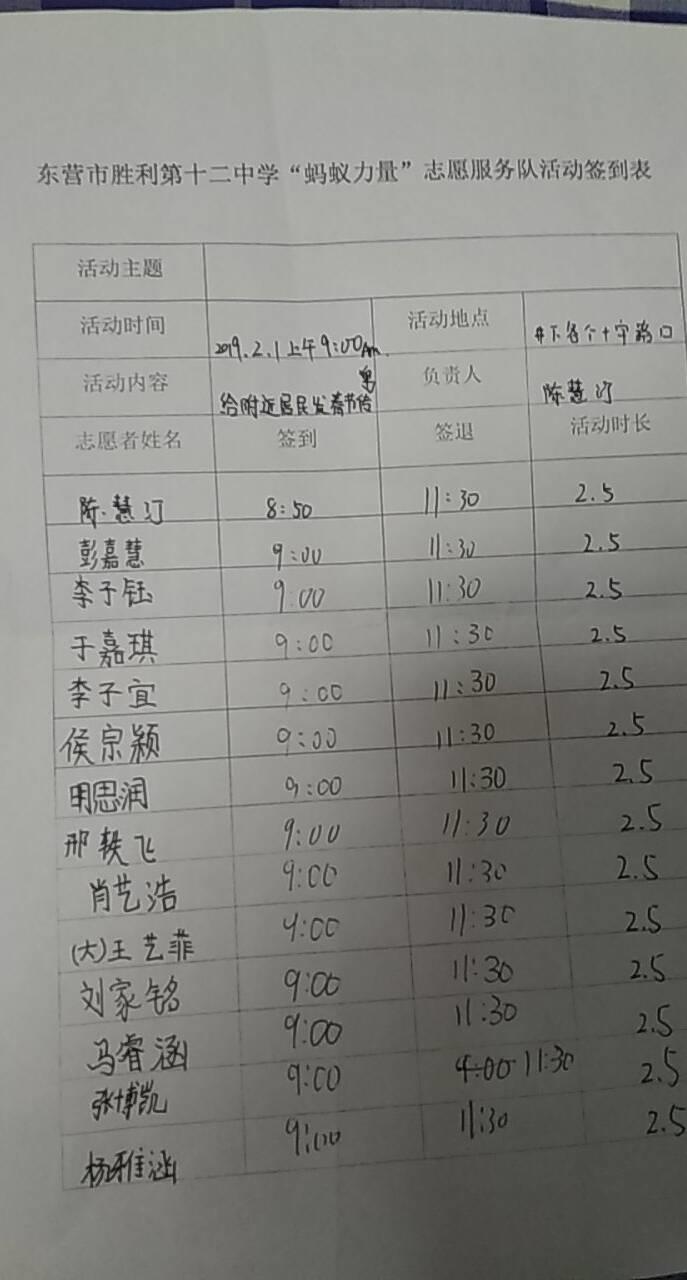 东营市胜利第十二中学“蚂蚁力量”志愿服务队活动签到表
活动主题
活动时间 2019.2.1上午9:00Am. 活动地点 #下各个十字路口
活动内容 给附近居民发春节传单 负责人 陈慧汀
志愿者姓名 签到 签退 活动时长
陈慧汀 8:50 11:30 2.5
彭嘉慧 9:00 11:30 2.5
李子钰 9:00 11:30 2.5
于嘉琪 9:00 11:30 2.5
李子宜 9:00 11:30 2.5
侯宗颖 9:00 11:30 2.5
明思润 9:00 11:30 2.5
邢轶飞 9:00 11:30 2.5
肖艺浩 9:00 11:30 2.5
(大)王艺菲 9:00 11:30 2.5
刘家铭 9:00 11:30 2.5
马睿涵 9:00 11:30 2.5
张博凯 9:00 11:30 2.5
杨雅涵 9:00 11:30 2.5